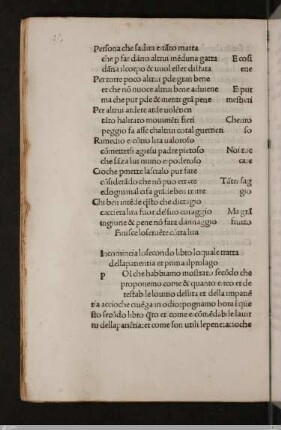 Persona che fadita e tāto matta
che p far dāno altrui mēduna gatta E cosi
dāna il corpo & uuol esser disfata ene
Per torre poco altrui pde gran bene
et che nō nuoce altrui bene adviene E pur
ma che pur pde & menti grā pene mestieri
Per altrui ardere arde
tāto halitato movimēti fieri Che no
peggio fa asse chaltrui cotal so
Rimedio e cōtra lira ualoroso
cōmettersi agiesu padre pietoso Noi
che sāza lui niuno e poderoso care
Cio che penette lascialo pur fare
cōsiderādo che nō puo errate Tāto sag
edogni mal cosa grāde ben trarre gio
Chi ben intēde q̄sto che dictogio
caccera lira fuor del suo coraggio Ma grā
ragione & pene nō fara dannaggio frutto
Finisce loseruēte cōtra lira
Incomincia lo secondo libro lo quale tratta
della patientia et prima il prolago
P OI che habbiamo mostrato secōdo che
proponemo come & quanto e reo et de
testabile lo uitio dellira et della impatiē
tia accioche uēga in odio: pognamo hora i que
sto secōdo libro q̄to et come e cōmēdabile la uir
tu della patiētia: et come son utili le pene: accioche